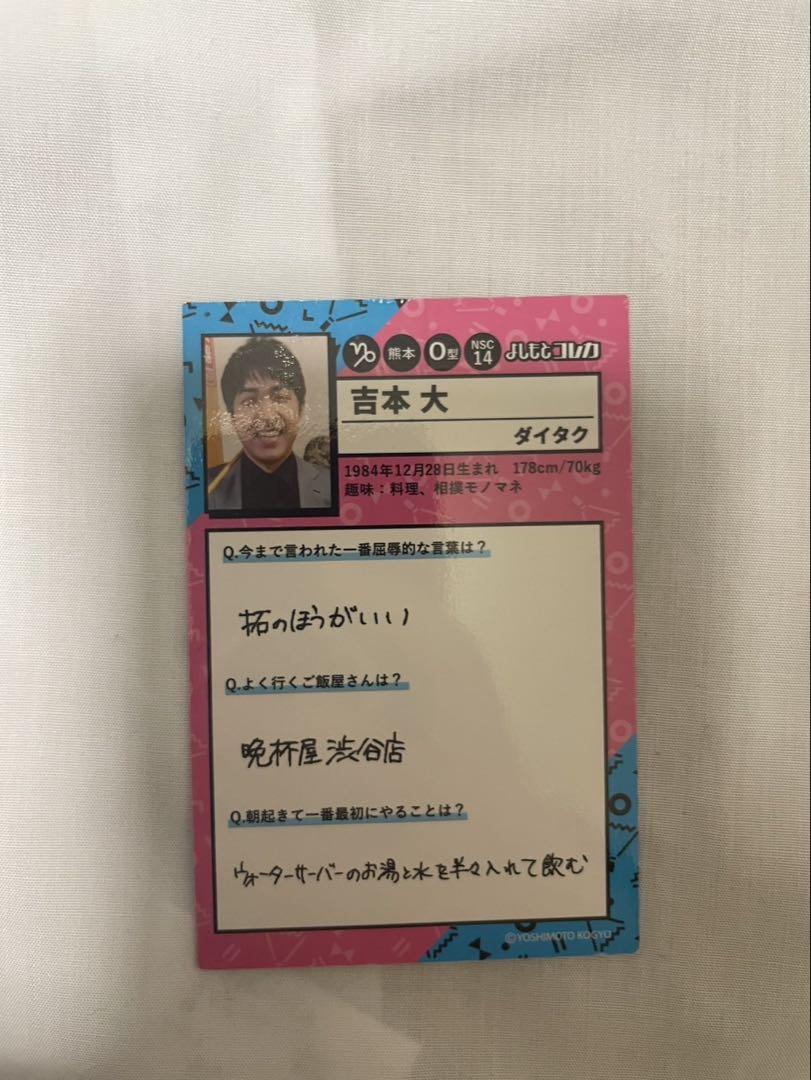 熊本
O型
NSC
14
よしもとコレカ
吉本 大
ダイタク
1984年12月28日生まれ 178cm/70kg
趣味：料理、相撲モノマネ
Q.今まで言われた一番屈辱的な言葉は？
拓のほうがいい
Q.よく行くご飯屋さんは？
晩杯屋 渋谷店
Q.朝起きて一番最初にやることは？
ウォーターサーバーのお湯と水を半々入れて飲む
©YOSHIMOTO KOGYO